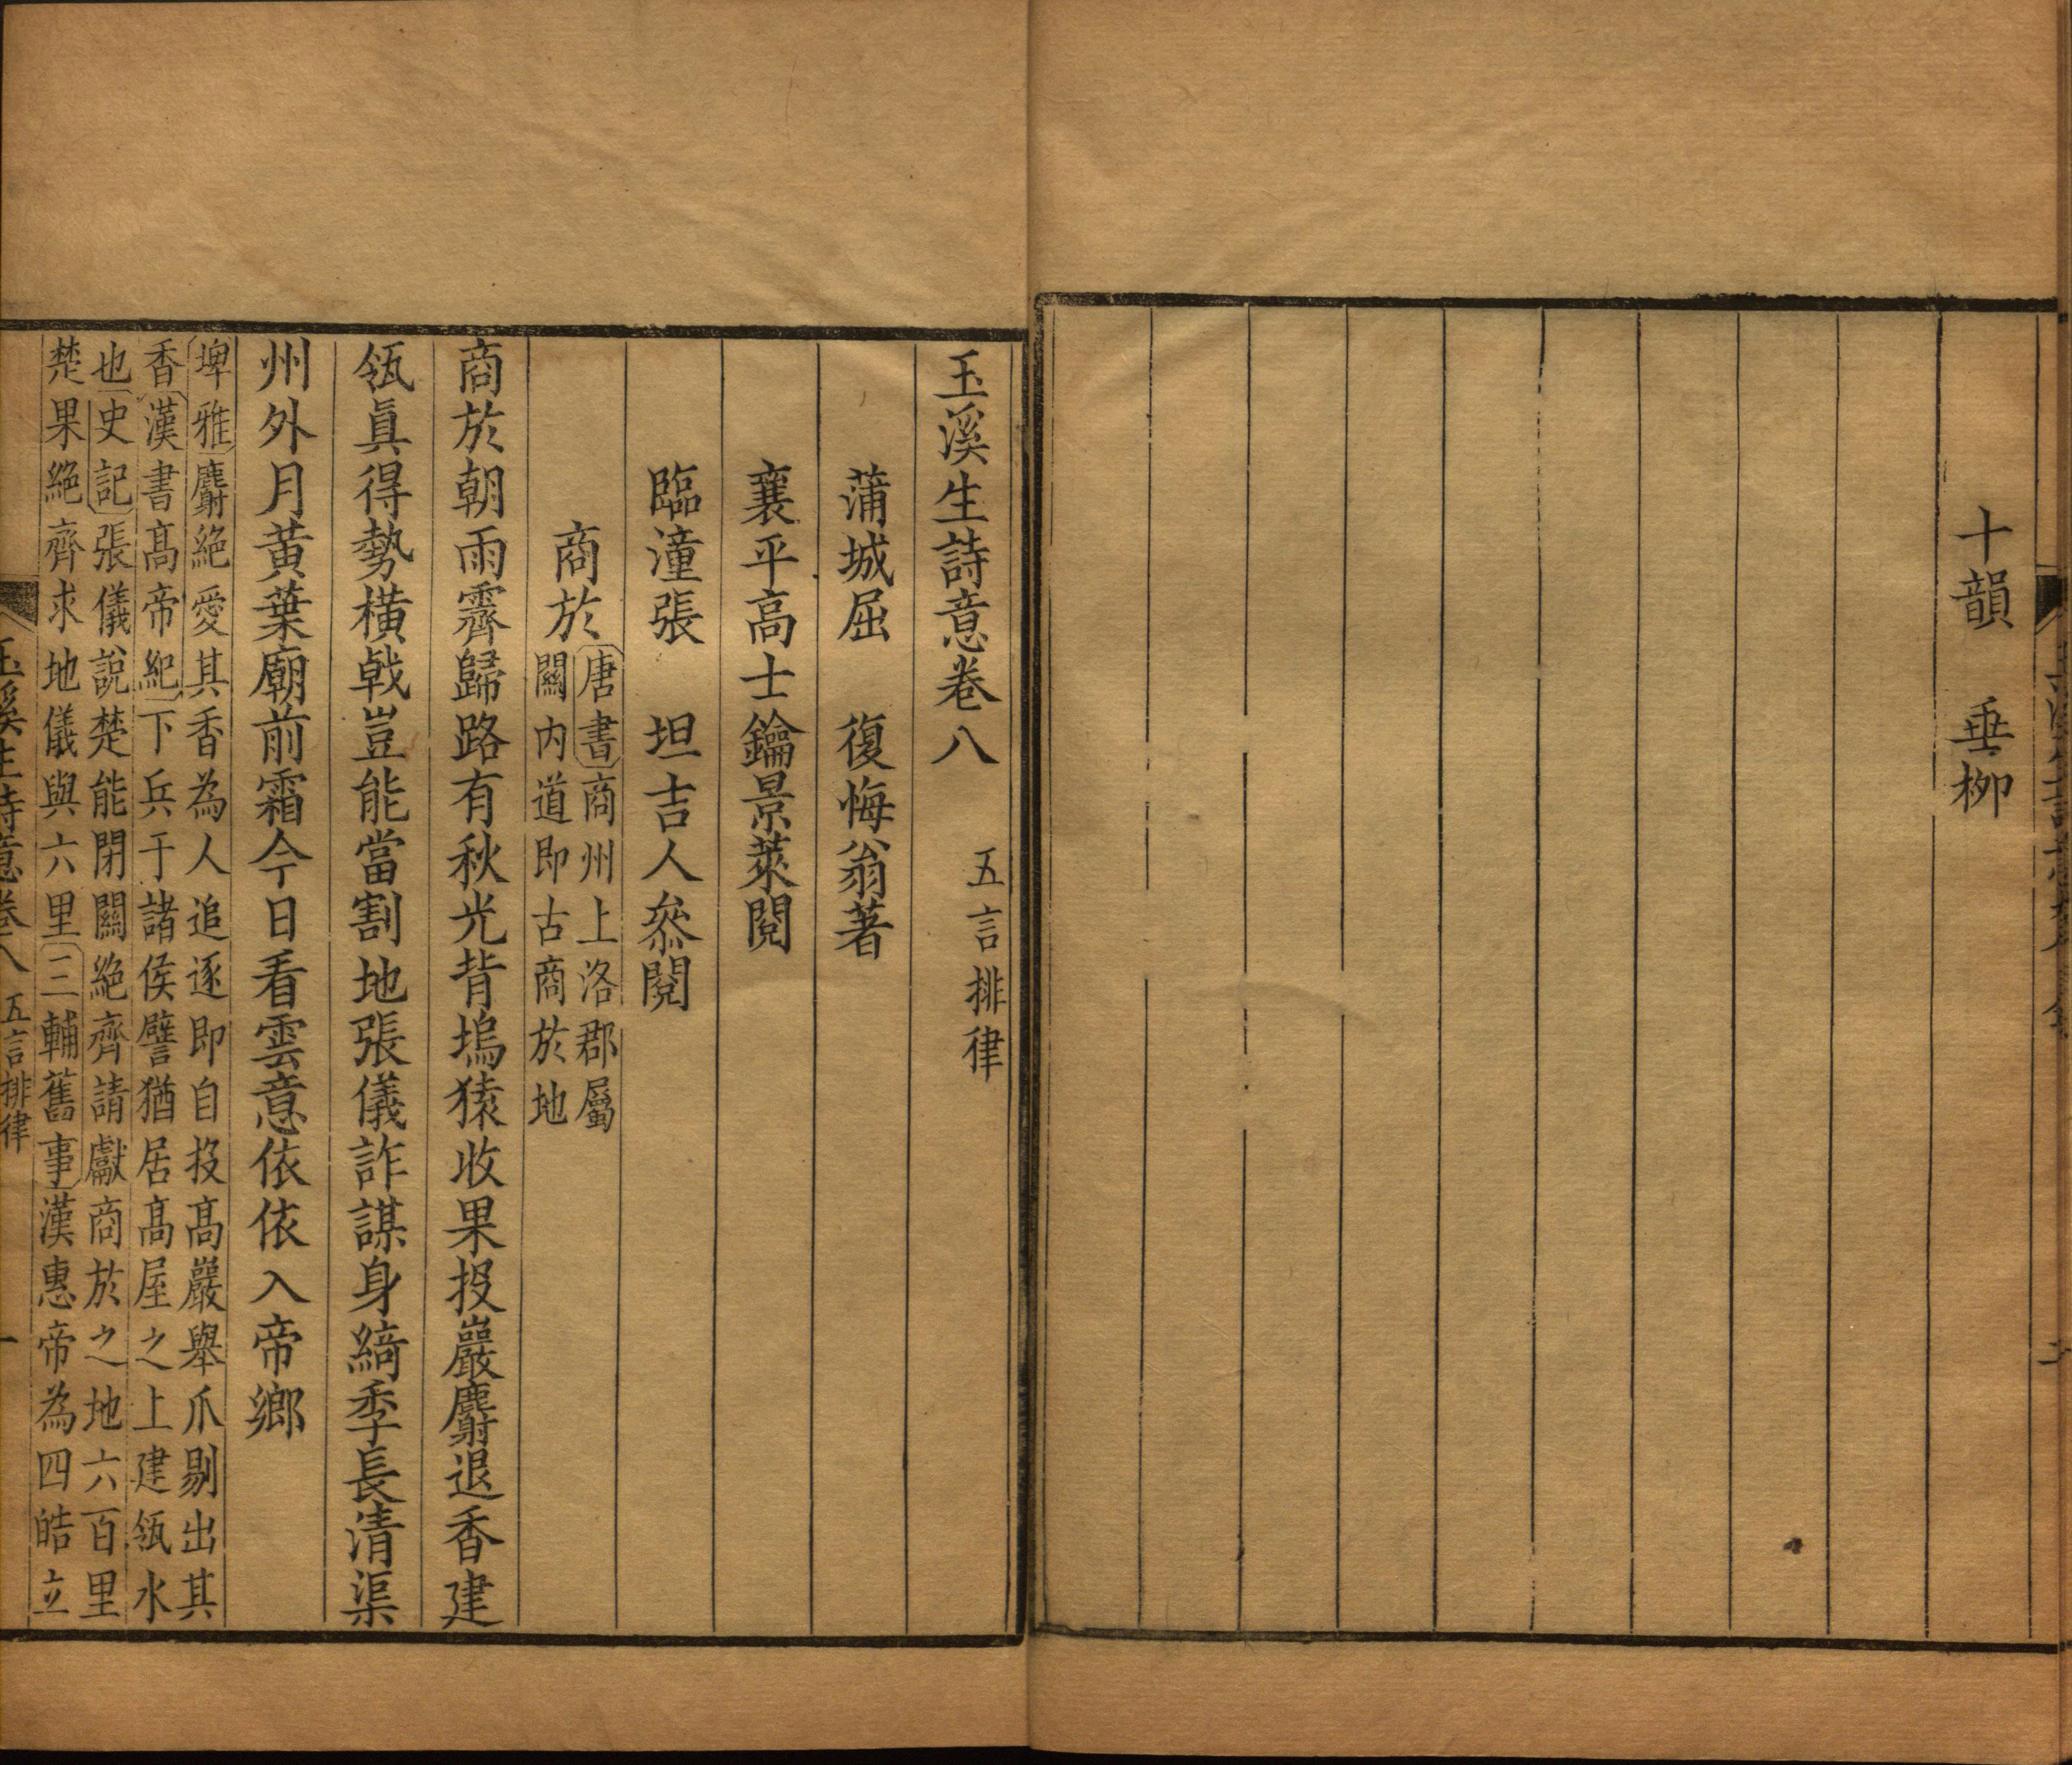 十韻　垂柳
玉溪生詩意卷八　五言排律
蒲城屈　復悔翁著
襄平高士鑰景萊閱
臨潼張　坦吉人叅閱
商於
唐書商州上洛郡屬
關内道即古商於地
商於朝雨霽歸路有秋光背塢猿收果投巖麝退香建
瓴眞得勢橫戟豈能當割地張儀詐謀身綺季長清渠
州外月黃葉廟前霜今日看雲意依依入帝鄉
埤雅麝絕愛其香為人追逐即自投高巖舉爪剔出其
香漢書高帝紀下兵于諸侯譬猶居高屋之上建瓴水
也史記張儀說楚能閉關絕齊請獻商於之地六百里
楚果絕齊求地儀與六里三輔舊事漢惠帝為四皓立
玉溪生詩意卷八　五言排律　一